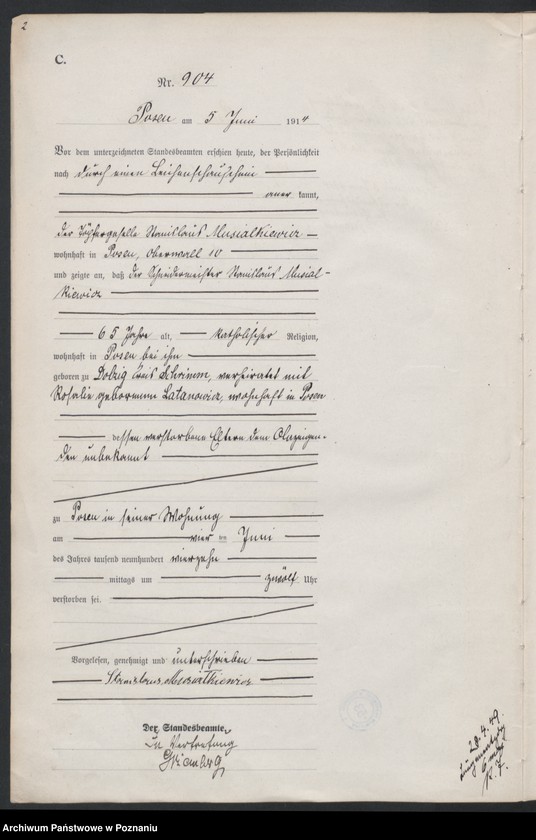 2
C.
Nr. 904
Posen am 5 Juni 1914
Vor dem unterzeichneten Standesbeamten erschien heute, der Persönlichkeit
nach durch einen Leichenschauschein
aner kannt,
der Töpfergeselle Stanislaus Musialkiewicz
wohnhaft in Posen, Oberwall 10
und zeigte an, daß der Schneidermeister Stanislaus Musial-
kiewicz
65 Jahre alt, katholischer Religion,
wohnhaft in Posen bei ihm
geboren zu Dolzig Kreis Schrimm, verheiratet mit
Rosalie geborenen Latanowicz, wohnhaft in Posen
dessen verstorbene Eltern dem Anzeigen-
den unbekannt
zu Posen in seiner Wohnung
am vier ten Juni
des Jahres tausend neunhundert vierzehn
mittags um zwölf Uhr
verstorben sei.
Vorgelesen, genehmigt und unterschrieben
Stanislaus Musiałkiewicz
Der Standesbeamte
In Vertretung
28.4.49
Archiwum Państwowe w Poznaniu